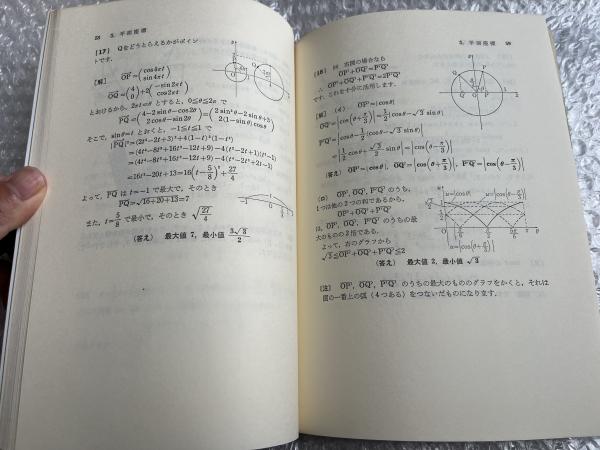 28 3. 平面座標
〔17〕 Qをどうとらえるかがポイン
トです。
〔解〕 OP=(cos4πt
sin4πt)
OQ=(4
0)+2(−sin2πt
cos2πt)
とおけるから、2πt=θ とすると、0≦θ≦2π で
PQ=(4−2 sinθ−cos2θ
2 cosθ−sin2θ)=(2 sin²θ−2 sinθ+3
2(1−sinθ)cosθ)
そこで、sinθ=t とおくと、−1≦t≦1 で
|PQ|²=(2t²−2t+3)²+4(1−t)²(1−t²)
=(4t⁴−8t³+16t²−12t+9)−4(t²−2t+1)(t²−1)
=(4t⁴−8t³+16t²−12t+9)−4(t⁴−2t³+2t−1)
=16t²−20t+13=16(t−5/8)²+27/4
よって、PQ は t=−1 で最大で、そのとき
PQ=√16+20+13=7
また、t=5/8 で最小で、そのとき √27/4
(答え) 最大値 7, 最小値 3√3/2
3. 平面座標 29
〔解〕 (イ) OP'=|cosθ|
OQ'=|cos(θ+π/3)|=1/2|cosθ−√3 sinθ|
P'Q'=|cosθ−1/2(cosθ−√3 sinθ)|
=|1/2 cosθ+√3/2 sinθ|=|cos(θ−π/3)|
(答え) OP'=|cosθ|, OQ'=|cos(θ+π/3)|, P'Q'=|cos(θ−π/3)|
(ロ) OP', OQ', P'Q' のうち、
1つは他の2つの和であるから、
OP'+OQ'+P'Q'
は、OP', OQ', P'Q' のうちの最
大のものの2倍である。
よって、右のグラフから
√3≦OP'+OQ'+P'Q'≦2
(答え) 最大値 2, 最小値 √3
u=|cosθ|
u=|cos(θ−π/3)|
u=|cos(θ+π/3)|
〔注〕 OP', OQ', P'Q' のうちの最大のもののグラフをかくと、それは
図の一番上の弧(4つある)をつないだものになります。